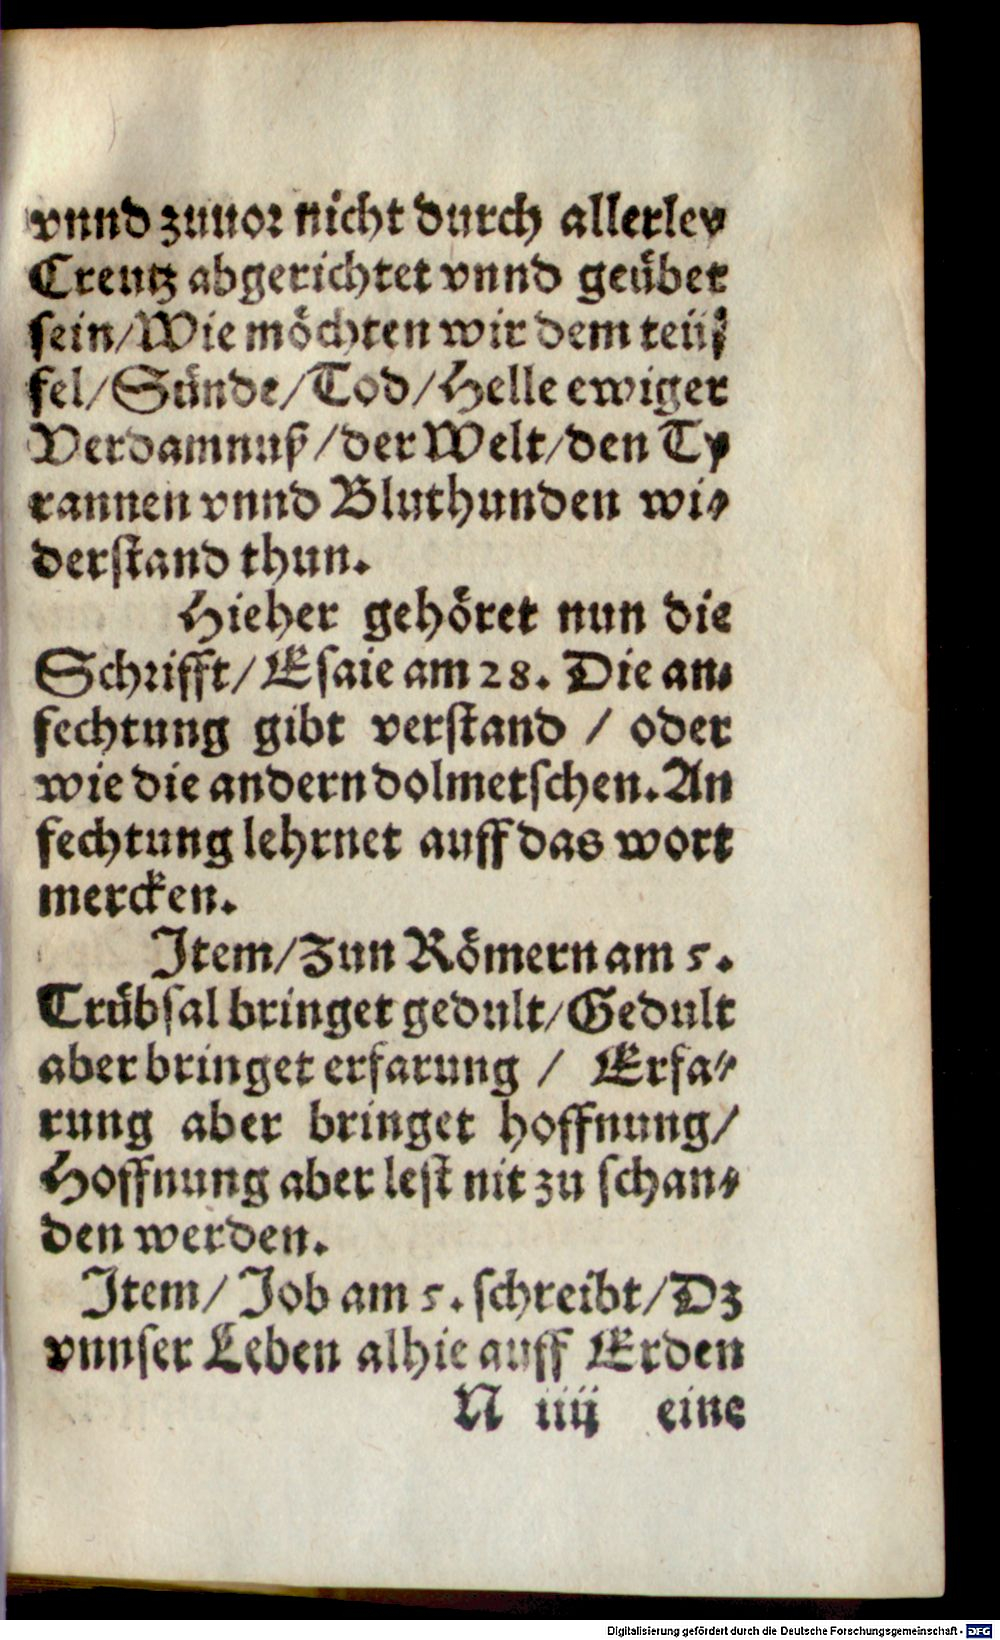 vnnd zuuor nicht durch allerley
Creutz abgerichtet vnnd geübet
sein/Wie möchten wir dem teüf⸗
fel/Sünde/Tod/Helle ewiger
Verdamnuß/der Welt/den Ty
rannen vnnd Bluthunden wi⸗
derstand thun.
Hieher gehöret nun die
Schrifft/Esaie am 28. Die an⸗
fechtung gibt verstand / oder
wie die andern dolmetschen. An
fechtung lehrnet auff das wort
mercken.
Item/Zun Römern am 5.
Trübsal bringet gedult/Gedult
aber bringet erfarung / Erfa⸗
rung aber bringet hoffnung/
Hoffnung aber lest nit zu schan⸗
den werden.
Item/ Job am 5. schreibt/Dz
vnnser Leben alhie auff Erden
N iiij eine
Digitalisierung gefördert durch die Deutsche Forschungsgemeinschaft - DFG